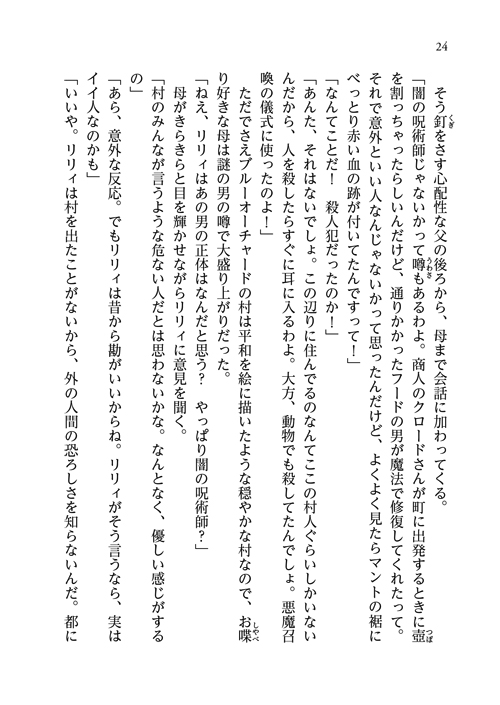 24
そう釘をさす心配性な父の後ろから、母まで会話に加わってくる。
「闇の呪術師じゃないかって噂もあるわよ。商人のクロードさんが町に出発するときに壺
を割っちゃったらしいんだけど、通りかかったフードの男が魔法で修復してくれたって。
それで意外といい人なんじゃないかって思ったんだけど、よくよく見たらマントの裾に
べっとり赤い血の跡が付いてたんですって！」
「なんてことだ！　殺人犯だったのか！」
「あんた、それはないでしょ。この辺りに住んでるのなんてここの村人ぐらいしかいない
んだから、人を殺したらすぐに耳に入るわよ。大方、動物でも殺してたんでしょ。悪魔召
喚の儀式に使ったのよ！」
ただでさえブルーオーチャードの村は平和を絵に描いたような穏やかな村なので、お喋
り好きな母は謎の男の噂で大盛り上がりだった。
「ねえ、リリィはあの男の正体はなんだと思う？　やっぱり闇の呪術師？」
母がきらきらと目を輝かせながらリリィに意見を聞く。
「村のみんなが言うような危ない人だとは思わないかな。なんとなく、優しい感じがする
の」
「あら、意外な反応。でもリリィは昔から勘がいいからね。リリィがそう言うなら、実は
イイ人なのかも」
「いいや。リリィは村を出たことがないから、外の人間の恐ろしさを知らないんだ。都に